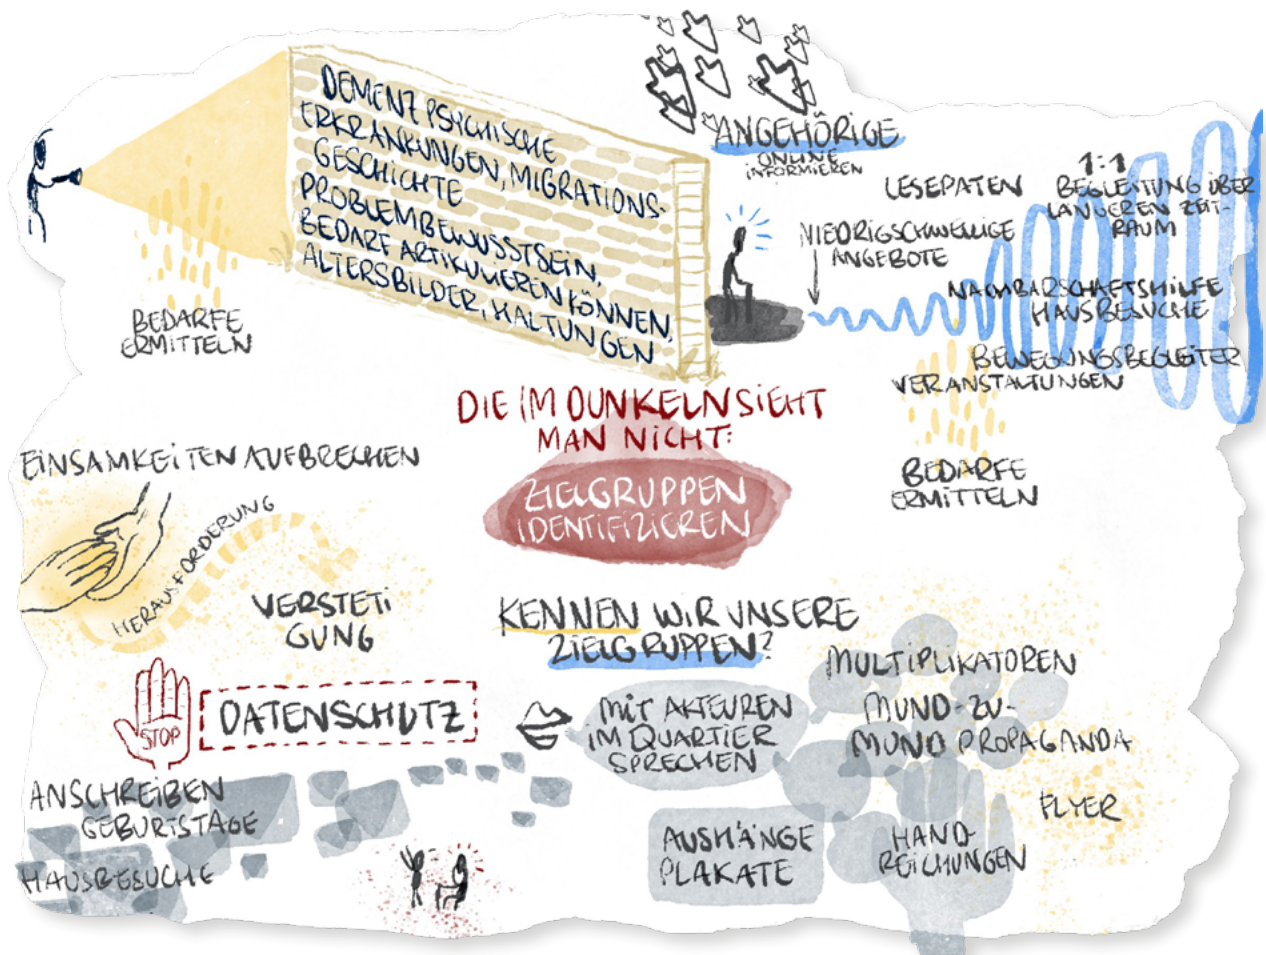 DEMENZ PSYCHISCHE
ERKRANKUNGEN, MIGRATIONS-
GESCHICHTE
PROBLEMBEWUSSTSEIN,
BEDARF ARTIKULIEREN KÖNNEN,
ALTERSBILDER, HALTUNGEN
BEDARFE
ERMITTELN
ANGEHÖRIGE
ONLINE
INFORMIEREN
LESEPATEN
1:1
BEGLEITUNG ÜBER
LÄNGEREN ZEIT-
RAUM
NIEDRIGSCHWELLIGE
ANGEBOTE
NACHBARSCHAFTSHILFE
HAUSBESUCHE
BEWEGUNGSBEGLEITER
VERANSTALTUNGEN
BEDARFE
ERMITTELN
DIE IM DUNKELN SIEHT
MAN NICHT:
ZIELGRUPPEN
IDENTIFIZIEREN
EINSAMKEITEN AUFBRECHEN
HERAUSFORDERUNG
VERSTETI
GUNG
STOP
DATENSCHUTZ
ANSCHREIBEN
GEBURTSTAGE
HAUSBESUCHE
KENNEN WIR UNSERE
ZIELGRUPPEN?
MIT AKTEUREN
IM QUARTIER
SPRECHEN
MULTIPLIKATOREN
MUND-ZU-
MUND PROPAGANDA
FLYER
AUSHÄNGE
PLAKATE
HAND-
REICHUNGEN